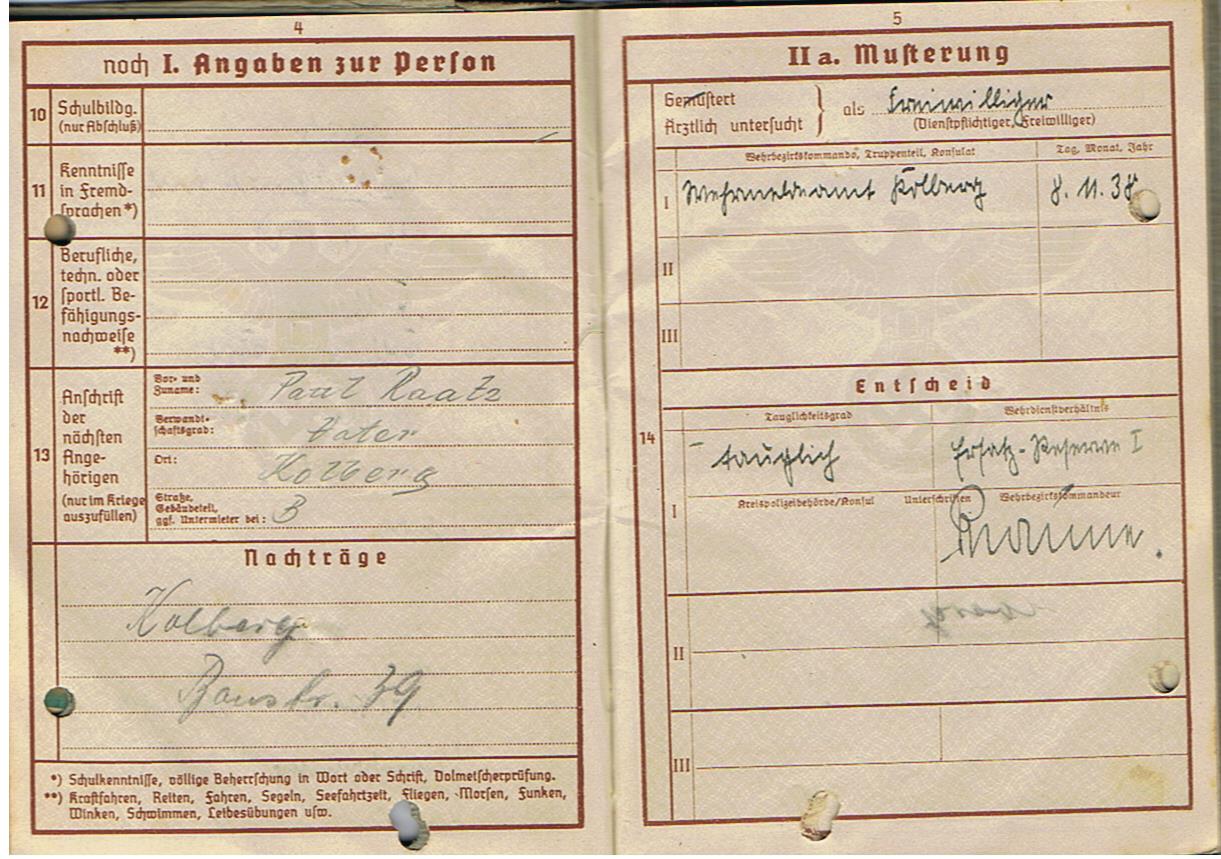 4
noch I. Angaben zur Person
10 Schulbildg.
(nur Abschluß)
11 Kenntnisse
in Fremd-
sprachen *)
12 Berufliche,
techn. oder
sportl. Be-
fähigungs-
nachweise
**)
13 Anschrift
der
nächsten
Ange-
hörigen
(nur im Kriege
auszufüllen)
Vor- und
Zuname: Paul Raatz
Verwandt-
schaftsgrad: Vater
Ort: Kolberg
Straße,
Gebäudeteil,
ggf. Untermieter bei: 3
Nachträge
Kolberg
39
*) Schulkenntnisse, völlige Beherrschung in Wort oder Schrift, Dolmetscherprüfung.
**) Kraftfahren, Reiten, Fahren, Segeln, Seefahrtzeit, Fliegen, Morsen, Funken,
Winken, Schwimmen, Leibesübungen usw.
5
II a. Musterung
Gemustert
Ärztlich untersucht } als Freiwilliger
(Dienstpflichtiger, Freiwilliger)
Wehrbezirkskommando, Truppenteil, Konsulat Tag, Monat, Jahr
I Wehrmeldeamt Kolberg 8. 11. 38
II
III
Entscheid
14
Tauglichkeitsgrad Wehrdienstverhältnis
tauglich Ersatz-Reserve I
I Kreispolizeibehörde/Konsul Unterschriften Wehrbezirkskommandeur
II
III